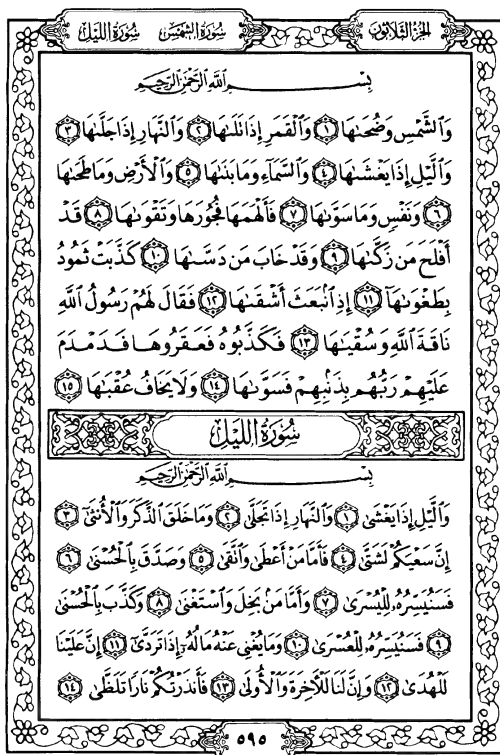 الجزء الثلاثون
سورة الشمس سورة الليل
بِسْمِ اللَّهِ الرَّحْمَٰنِ الرَّحِيمِ
وَالشَّمْسِ وَضُحَىٰهَا ١ وَالْقَمَرِ إِذَا تَلَىٰهَا ٢ وَالنَّهَارِ إِذَا جَلَّىٰهَا ٣
وَالَّيْلِ إِذَا يَغْشَىٰهَا ٤ وَالسَّمَاءِ وَمَا بَنَىٰهَا ٥ وَالْأَرْضِ وَمَا طَحَىٰهَا
٦ وَنَفْسٍ وَمَا سَوَّىٰهَا ٧ فَأَلْهَمَهَا فُجُورَهَا وَتَقْوَىٰهَا ٨ قَدْ
أَفْلَحَ مَن زَكَّىٰهَا ٩ وَقَدْ خَابَ مَن دَسَّىٰهَا ١٠ كَذَّبَتْ ثَمُودُ
بِطَغْوَىٰهَا ١١ إِذِ انبَعَثَ أَشْقَىٰهَا ١٢ فَقَالَ لَهُمْ رَسُولُ اللَّهِ
نَاقَةَ اللَّهِ وَسُقْيَٰهَا ١٣ فَكَذَّبُوهُ فَعَقَرُوهَا فَدَمْدَمَ
عَلَيْهِمْ رَبُّهُم بِذَنبِهِمْ فَسَوَّىٰهَا ١٤ وَلَا يَخَافُ عُقْبَٰهَا ١٥
سورة الليل
بِسْمِ اللَّهِ الرَّحْمَٰنِ الرَّحِيمِ
وَالَّيْلِ إِذَا يَغْشَىٰ ١ وَالنَّهَارِ إِذَا تَجَلَّىٰ ٢ وَمَا خَلَقَ الذَّكَرَ وَالْأُنثَىٰ ٣
إِنَّ سَعْيَكُمْ لَشَتَّىٰ ٤ فَأَمَّا مَنْ أَعْطَىٰ وَاتَّقَىٰ ٥ وَصَدَّقَ بِالْحُسْنَىٰ ٦
فَسَنُيَسِّرُهُ لِلْيُسْرَىٰ ٧ وَأَمَّا مَن بَخِلَ وَاسْتَغْنَىٰ ٨ وَكَذَّبَ بِالْحُسْنَىٰ
٩ فَسَنُيَسِّرُهُ لِلْعُسْرَىٰ ١٠ وَمَا يُغْنِي عَنْهُ مَالُهُ إِذَا تَرَدَّىٰ ١١ إِنَّ عَلَيْنَا
لَلْهُدَىٰ ١٢ وَإِنَّ لَنَا لَلْآخِرَةَ وَالْأُولَىٰ ١٣ فَأَنذَرْتُكُمْ نَارًا تَلَظَّىٰ ١٤
٥٩٥